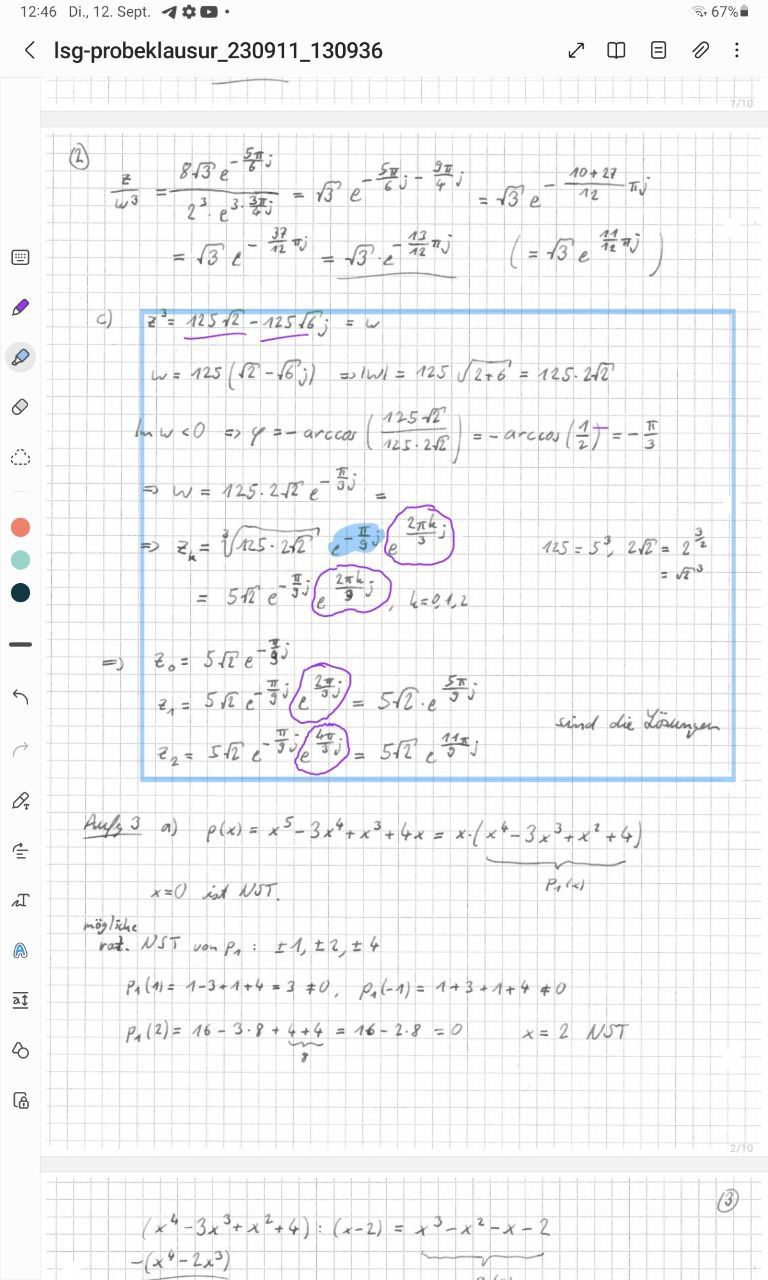 12:46 Di., 12. Sept. • 67%
lsg-probeklausur_230911_130936
1/10
②
z/w³ = (8√3 e^(-5π/6 j))/(2³ · e^(3·3π/4 j)) = √3 e^(-5π/6 j - 9π/4 j) = √3 e^(- (10+27)/12 πj)
= √3 e^(-37/12 πj) = √3 · e^(-13/12 πj) (= √3 e^(11/12 πj))
c) z³ = 125√2 - 125√6 j = w
w = 125 (√2 - √6 j) ⇒ |w| = 125 √(2+6) = 125 · 2√2
Im w < 0 ⇒ φ = - arccos (125√2/(125·2√2)) = - arccos (1/2) = - π/3
⇒ w = 125 · 2√2 e^(-π/3 j) =
⇒ z_k = ³√(125 · 2√2) e^(-π/9 j) e^(2πk/3 j) 125 = 5³, 2√2 = 2^(3/2)
= √2³
= 5√2 e^(-π/9 j) e^(2πk/9 j), k=0,1,2
⇒ z₀ = 5√2 e^(-π/9 j)
z₁ = 5√2 e^(-π/9 j) e^(2π/3 j) = 5√2 · e^(5π/9 j)
sind die Lösungen
z₂ = 5√2 e^(-π/9 j) e^(4π/3 j) = 5√2 e^(11π/9 j)
Aufg 3 a) p(x) = x⁵ - 3x⁴ + x³ + 4x = x · (x⁴ - 3x³ + x² + 4)
p₁(x)
x=0 ist NST.
mögliche
rat. NST von p₁ : ±1, ±2, ±4
p₁(1) = 1-3+1+4 = 3 ≠ 0, p₁(-1) = 1+3+1+4 ≠ 0
p₁(2) = 16 - 3·8 + 4+4 = 16 - 2·8 = 0 x = 2 NST
8
2/10
③
(x⁴ - 3x³ + x² + 4) : (x-2) = x³ - x² - x - 2
-(x⁴ - 2x³)